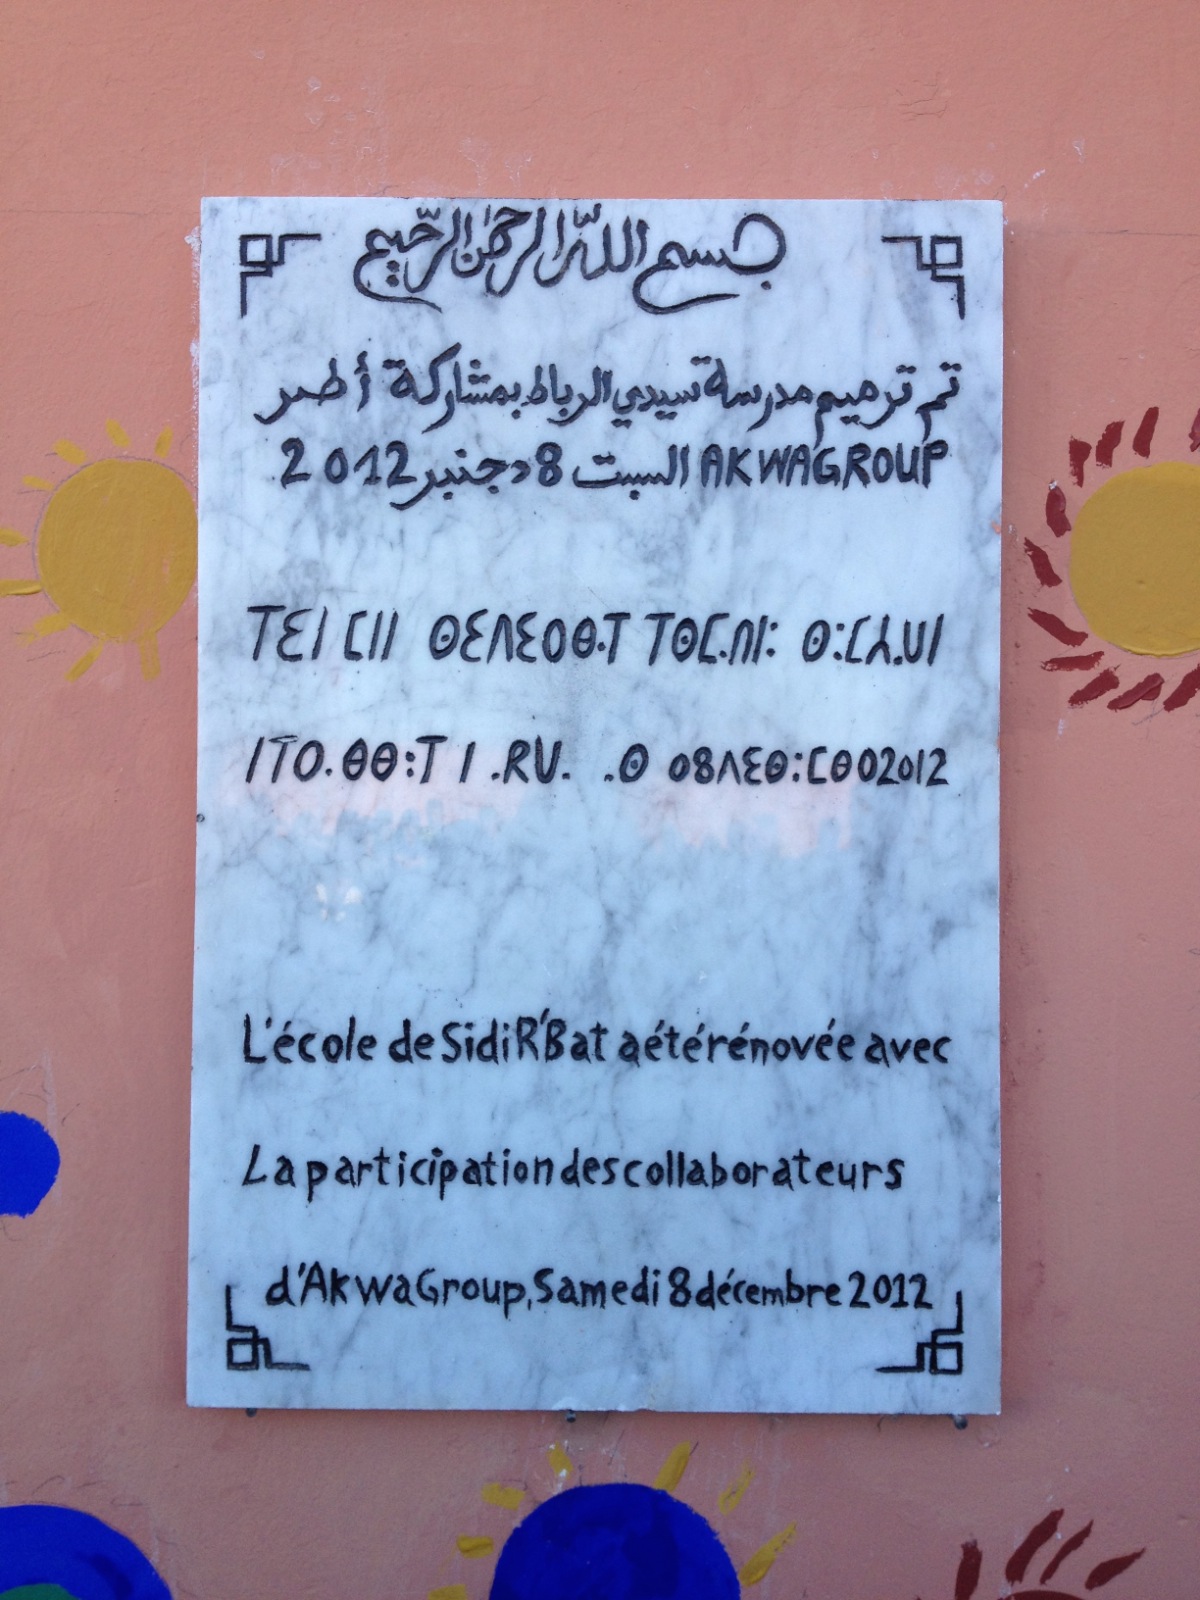 بسم الله الرحمن الرحيم
تم ترميم مدرسة سيدي الرباط بمشاركة أطر
AKWAGROUP السبت 8 دجنبر 2012
ⵜⵉⵏ ⵎⵍ ⵙⵉⴷⵉⵔⴱⴰⵜ ⵜⵙⵎⴰⵍⵏⵓ ⵙⵓⵎⵢⴰⵡⵏ
ⵏⵜⵔⴰⴱⴱⵓⵜ ⵏ ⴰⴽⵡⴰ ⴰⵙ 08ⴷⵉⵙⵓⵎⴱⵔ2012
L'école de Sidi R'Bat a été rénovée avec
La participation des collaborateurs
d'AkwaGroup, Samedi 8 décembre 2012